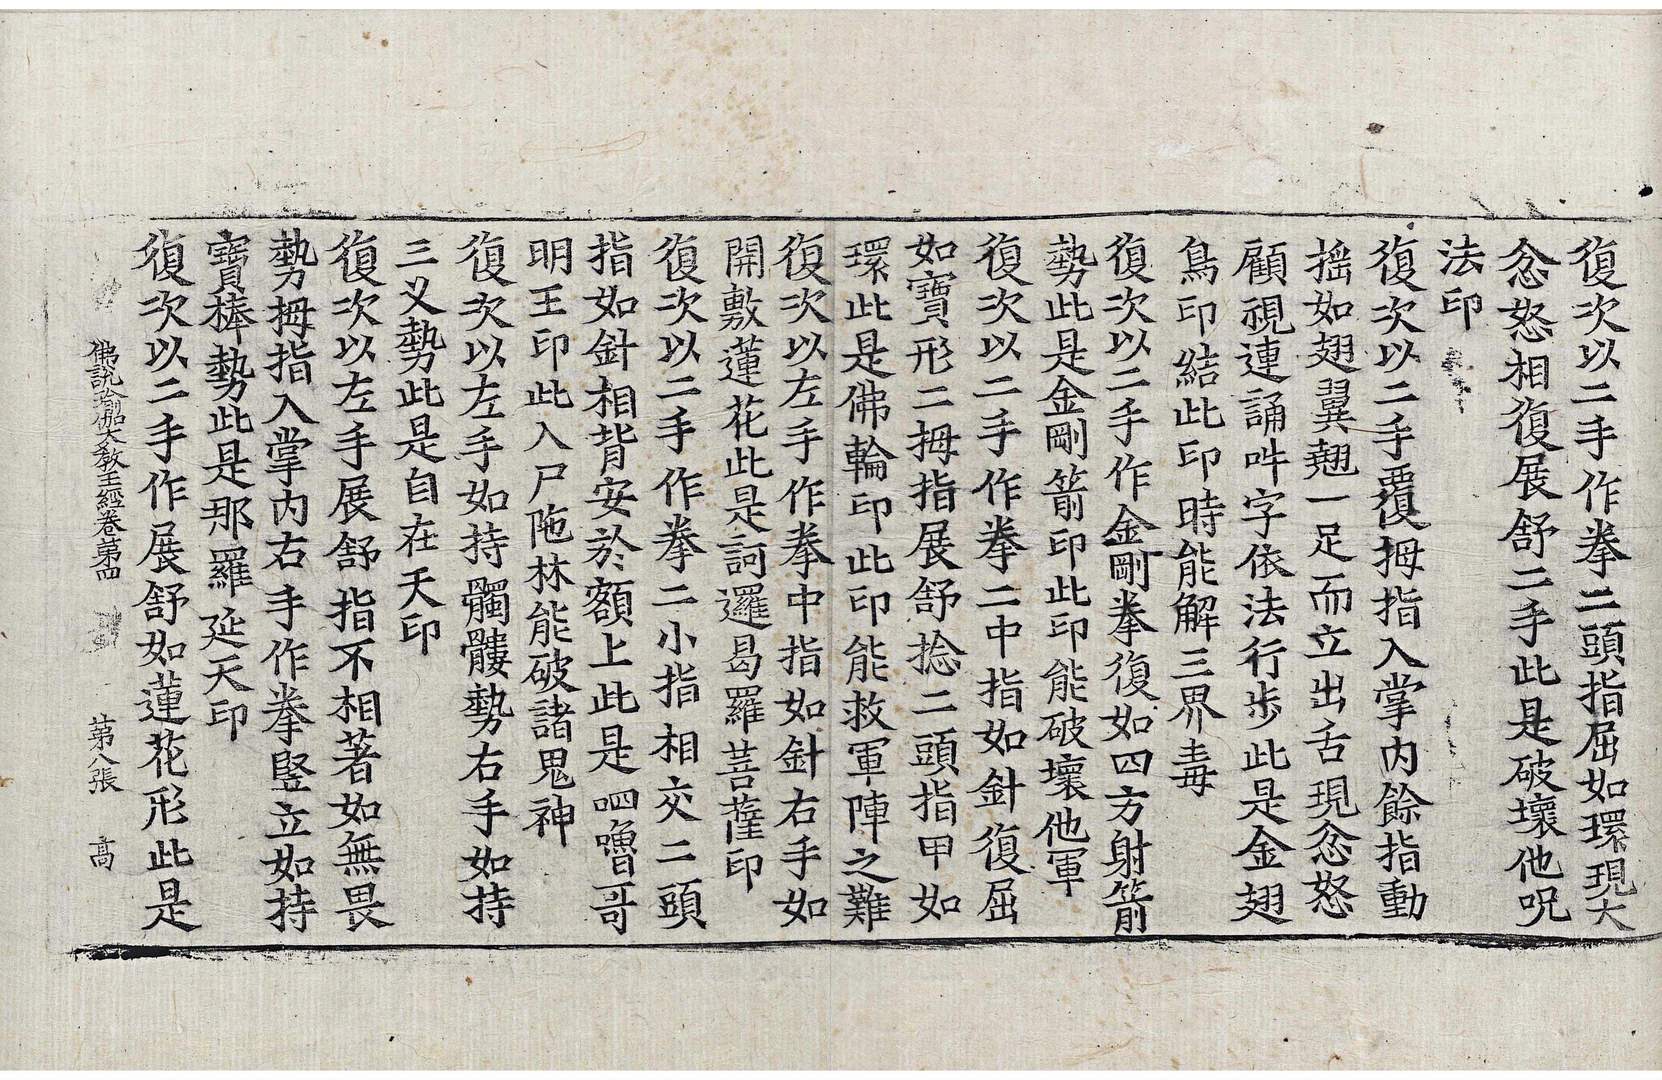 復次以二手作拳二頭指屈如環現大
忿怒相復展舒二手此是破壞他呪
法印
復次以二手覆拇指入掌內餘指動
搖如翅翼翹一足而立出舌現忿怒
顧視連誦吽字依法行步此是金翅
鳥印結此印時能解三界毒
復次以二手作金剛拳復如四方射箭
勢此是金剛箭印此印能破壞他軍
復次以二手作拳二中指如針復屈
如寶形二拇指展舒捻二頭指甲如
環此是佛輪印此印能救軍陣之難
復次以左手作拳中指如針右手如
開敷蓮花此是訶邏曷羅菩薩印
復次以二手作拳二小指相交二頭
指如針相背安於額上此是呬嚕哥
明王印此入尸陁林能破諸鬼神
復次以左手如持髑髏勢右手如持
三叉勢此是自在天印
復次以左手展舒指不相著如無畏
勢拇指入掌內右手作拳竪立如持
寶棒勢此是那羅延天印
復次以二手作展舒如蓮花形此是
佛說瑜伽大教王經卷第四 第八張 高